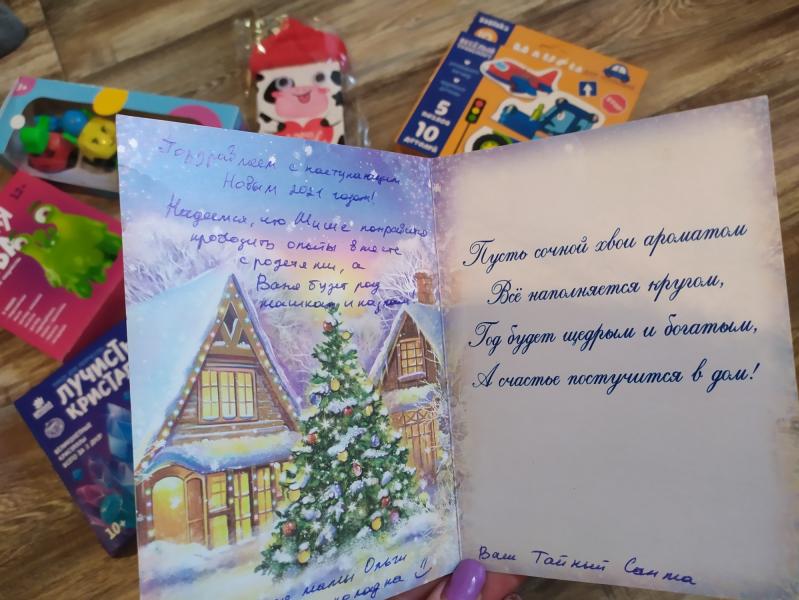 Поздравляем с наступающим
Новым 2021 годом!
Надеемся, что Мише понравится
проводить опыты вместе
с родителями, а
Ваня будет рад
машинкам и пазлам!
мамы Ольги
Ваш Тайный Санта
Пусть сочной хвои ароматом
Всё наполняется кругом,
Год будет щедрым и богатым,
А счастье постучится в дом!
ЛУЧИСТ
КРИСТА
10+
12+
3+
5
ПАЗЛОВ
10
ДЕТАЛЕЙ